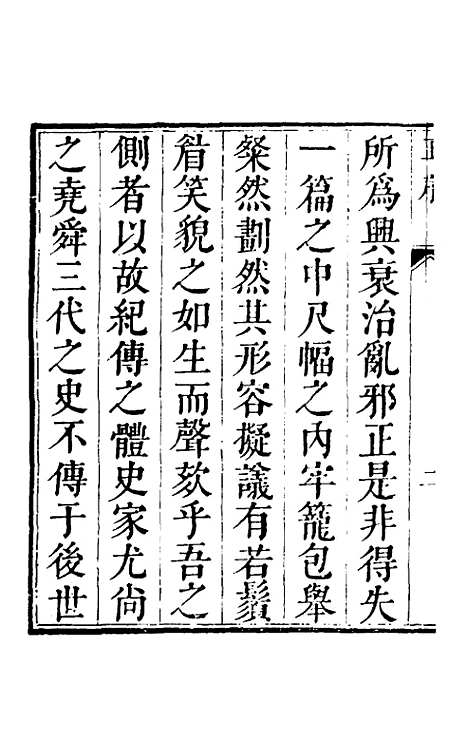 所爲興衰治亂邪正是非得失
一篇之中尺幅之內牢籠包舉
粲然劃然其形容擬議有若鬚
眉笑貌之如生而聲欬乎吾之
側者以故紀傳之體史家尤尚
之堯舜三代之史不傳于後世